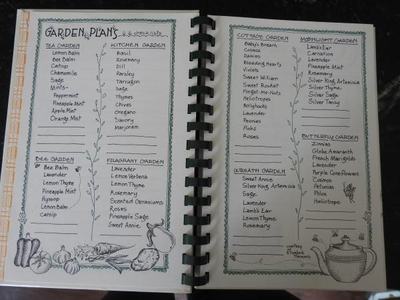 GARDEN PLANS
TEA GARDEN
Lemon Balm
Bee Balm
Catnip
Chamomile
Sage
Mints-
Peppermint
Pineapple Mint
Apple Mint
Orange Mint
KITCHEN GARDEN
Basil
Rosemary
Dill
Parsley
Tarragon
Sage
Thymes
Chives
Oregano
Savory
Marjoram
BEE GARDEN
Bee Balm
Lavender
Lemon Thyme
Pineapple Mint
Hyssop
Lemon Balm
Catnip
FRAGRANT GARDEN
Lavender
Lemon Verbena
Lemon Thyme
Rosemary
Scented Geraniums
Roses
Pineapple Sage
Sweet Annie
COTTAGE GARDEN
Baby's Breath
Cosmos
Daisies
Bleeding Hearts
Violets
Sweet William
Sweet Rocket
Forget-Me-Nots
Heliotropes
Hollyhocks
Lavender
Peonies
Pinks
Roses
MOONLIGHT GARDEN
Lamb's Ear
Carnation
Lavender
Pineapple Mint
Rosemary
Silver King Artemisia
Silver Thyme
Silver Sage
Silver Tansy
WREATH GARDEN
Sweet Annie
Silver King Artemisia
Sage
Lavender
Lamb's Ear
Lemon Thyme
Rosemary
BUTTERFLY GARDEN
Zinnias
Globe Amaranth
French Marigolds
Lavender
Purple Coneflowers
Cosmos
Petunias
Phlox
Heliotrope